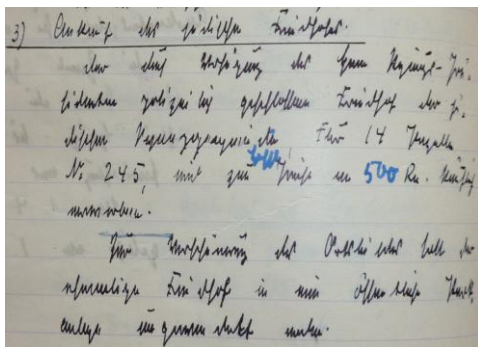 3) Ankauf des jüdischen Friedhofes.
Der durch Verfügung des Herrn Regierungs-Prä-
sidenten polizeilich geschlossene Friedhof der jü-
dischen Flur 14 Parzelle
Nr 245, wird zum Preise von 500 Rm. käuflich
erworben.
Zur Verschönerung des Ortsbildes soll der
ehemalige Friedhof in eine öffentliche Park-
anlage umgewandelt werden.